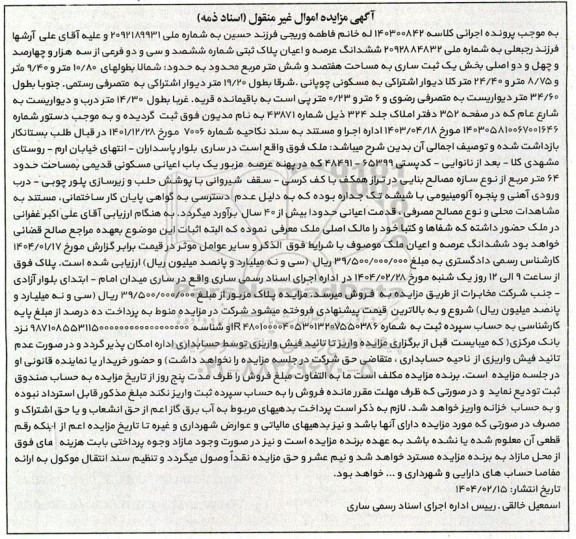 آگهی مزایده اموال غیر منقول (اسناد ذمه)
به موجب پرونده اجرائی کلاسه ۱۴۰۳۰۰۸۴۲ له خانم فاطمه وریجی فرزند حسین به شماره ملی ۲۰۹۲۱۸۹۹۳۱ و علیه آقای علی آرشها
فرزند رجبعلی به شماره ملی ۲۰۹۲۸۸۴۸۳۲ ششدانگ عرصه و اعیان پلاک ثبتی شماره ششصد و سی و دو فرعی از سه هزار و چهارصد
و چهل و دو اصلی بخش یک ثبت ساری به مساحت هفتصد و شش متر مربع محدود به حدود: شمالا بطولهای ۱۰/۸۰ متر و ۹/۴۰ متر
و ۸/۷۵ متر و ۲۴/۴۰ متر کلا دیوار اشتراکی به مسکونی چوپانی .شرقا بطول ۱۹/۲۰ متر دیوار اشتراکی به متصرفی رستمی. جنوبا بطول
۳۴/۶۰ متر دیواریست به متصرفی رضوی و ۶ متر و ۰/۲۳ متر پی است به باقیمانده قریه. غربا بطول ۱۴/۳۰ متر درب و دیواریست به
شارع عام که در صفحه ۳۵۲ دفتر املاک جلد ۳۲۴ ذیل شماره ۴۳۸۷۱ به نام مدیون فوق ثبت گردیده و به موجب دستور شماره
۱۴۰۳۰۵۸۱۰۰۶۷۰۰۱۶۴۶ مورخ ۱۴۰۳/۰۴/۱۸ اداره اجرا و مستند به سند نکاحیه شماره ۷۰۰۶ مورخ ۱۴۰۱/۱۲/۲۸ در قبال طلب بستانکار
بازداشت شده و توصیف اجمالی آن بدین شرح میباشد: ملک فوق واقع است در ساری بلوار پاسداران - انتهای خیابان ارم - روستای
مشهدی کلا - بعد از نانوایی - کدپستی ۶۵۳۹۹-۴۸۴۹۱ که در پهنه عرصه مزبور یک باب اعیانی مسکونی قدیمی بمساحت حدود
۶۴ متر مربع از نوع سازه مصالح بنایی در تراز همکف با کف کرسی - سقف شیروانی با پوشش حلب و زیرسازی پلور چوبی - درب
ورودی آهنی و پنجره آلومینیومی با شیشه تک جداره بوده که به دلیل عدم دسترسی به گواهی پایان کار ساختمانی، مستند به
مشاهدات محلی و نوع مصالح مصرفی ، قدمت اعیانی حدودا بیش از ۴۰ سال برآورد میگردد. به هنگام ارزیابی آقای علی اکبر غفرانی
در ملک حضور داشته که شفاها و کتبا خود را مالک اصلی ملک معرفی نموده که البته اثبات این موضوع بعهده مراجع صالح قضائی
خواهد بود ششدانگ عرصه و اعیان ملک موصوف با شرایط فوق الذکر و سایر عوامل موثر در قیمت برابر گزارش مورخ ۱۴۰۴/۰۱/۱۷
کارشناس رسمی دادگستری به مبلغ ۳۹/۵۰۰/۰۰۰/۰۰۰ ریال (سی و نه میلیارد و پانصد میلیون ریال) ارزیابی شده است. پلاک فوق
از ساعت ۹ الی ۱۲ روز یک شنبه مورخ ۱۴۰۴/۰۲/۲۸ در اداره اجرای اسناد رسمی ساری واقع در ساری میدان امام - ابتدای بلوار آزادی
- جنب شرکت مخابرات از طریق مزایده به فروش میرسد. مزایده پلاک مزبور از مبلغ ۳۹/۵۰۰/۰۰۰/۰۰۰ ریال (سی و نه میلیارد و
پانصد میلیون ریال) شروع و به بالاترین قیمت پیشنهادی فروخته میشود شرکت در مزایده منوط به پرداخت ده درصد از مبلغ پایه
کارشناسی به حساب سپرده ثبت به شماره IR۴۸۰۱۰۰۰۰۴۰۵۳۰۱۳۲۰۷۵۵۰۳۸۶ او شناسه نزد
بانک مرکزی( که میبایست قبل از برگزاری مزایده واریز تا تائید فیش واریزی توسط حسابداری اداره امکان پذیر گردد و در صورت عدم
تائید فیش واریزی از ناحیه حسابداری ، متقاضی حق شرکت در جلسه مزایده را نخواهد داشت) و حضور خریدار یا نماینده قانونی او
در جلسه مزایده است. برنده مزایده مکلف است ما به التفاوت مبلغ فروش را ظرف مدت پنج روز از تاریخ مزایده به حساب صندوق
ثبت تودیع نماید و در صورتی که ظرف مهلت مقرر مانده فروش را به حساب سپرده ثبت واریز نکند مبلغ مذکور قابل استرداد نبوده
و به حساب خزانه واریز خواهد شد. لازم به ذکر است پرداخت بدهیهای مربوط به آب برق گاز اعم از حق انشعاب و یا حق اشتراک و
مصرف در صورتی که مورد مزایده دارای آنها باشد و نیز بدهیهای مالیاتی و عوارض شهرداری و غیره تا تاریخ مزایده اعم از اینکه رقم
قطعی آن معلوم شده یا نشده باشد به عهده برنده مزایده است و نیز در صورت وجود مازاد وجوه پرداختی بابت هزینه های فوق
از محل مازاد به برنده مزایده مسترد خواهد شد و نیم عشر و حق مزایده نقداً وصول میگردد و تنظیم سند انتقال موکول به ارائه
مفاصا حساب های دارایی و شهرداری و ... خواهد بود.
تاریخ انتشار: ۱۴۰۴/۰۲/۱۵
اسمعیل خالقی . رییس اداره اجرای اسناد رسمی ساری